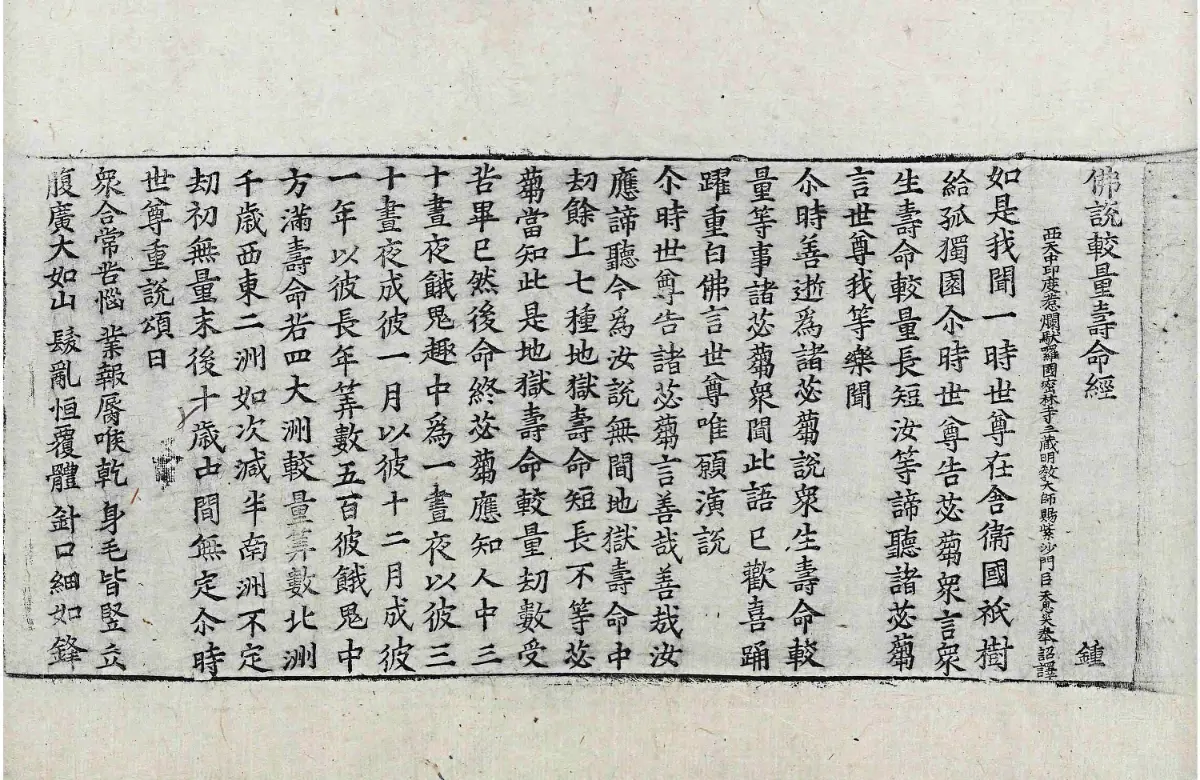 佛說較量壽命經 鍾
西天中印度惹爛馱囉國密林寺三藏明教大師賜紫沙門臣天息災奉詔譯
如是我聞一時世尊在舍衛國祇樹
給孤獨園尒時世尊告苾蒭衆言衆
生壽命較量長短汝等諦聽諸苾蒭
言世尊我等樂聞
尒時善逝爲諸苾蒭說衆生壽命較
量等事諸苾蒭衆聞此語已歡喜踊
躍重白佛言世尊唯願演說
尒時世尊告諸苾蒭言善哉善哉汝
應諦聽今爲汝說無間地獄壽命中
劫餘上七種地獄壽命短長不等苾
蒭當知此是地獄壽命較量劫數受
苦畢已然後命終苾蒭應知人中三
十晝夜餓鬼趣中爲一晝夜以彼三
十晝夜成彼一月以彼十二月成彼
一年以彼長年筭數五百彼餓鬼中
方滿壽命若四大洲較量筭數北洲
千歲西東二洲如次減半南洲不定
劫初無量末後十歲中間無定尒時
世尊重說頌曰
衆合常苦惱 業報脣喉乾 身毛皆竪立
腹廣大如山 髮亂恒覆體 針口細如鋒